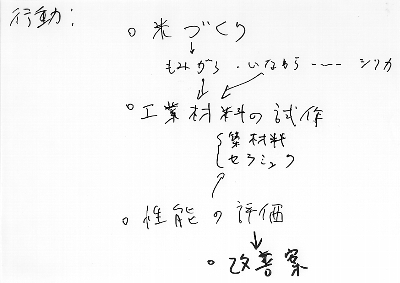 行動：
○ 米づくり
↓
もみがら ・いなわら ---- シリカ
○ 工業材料の試作
{築材料
セラミック
○ 性能の評価
↓
○ 改善案